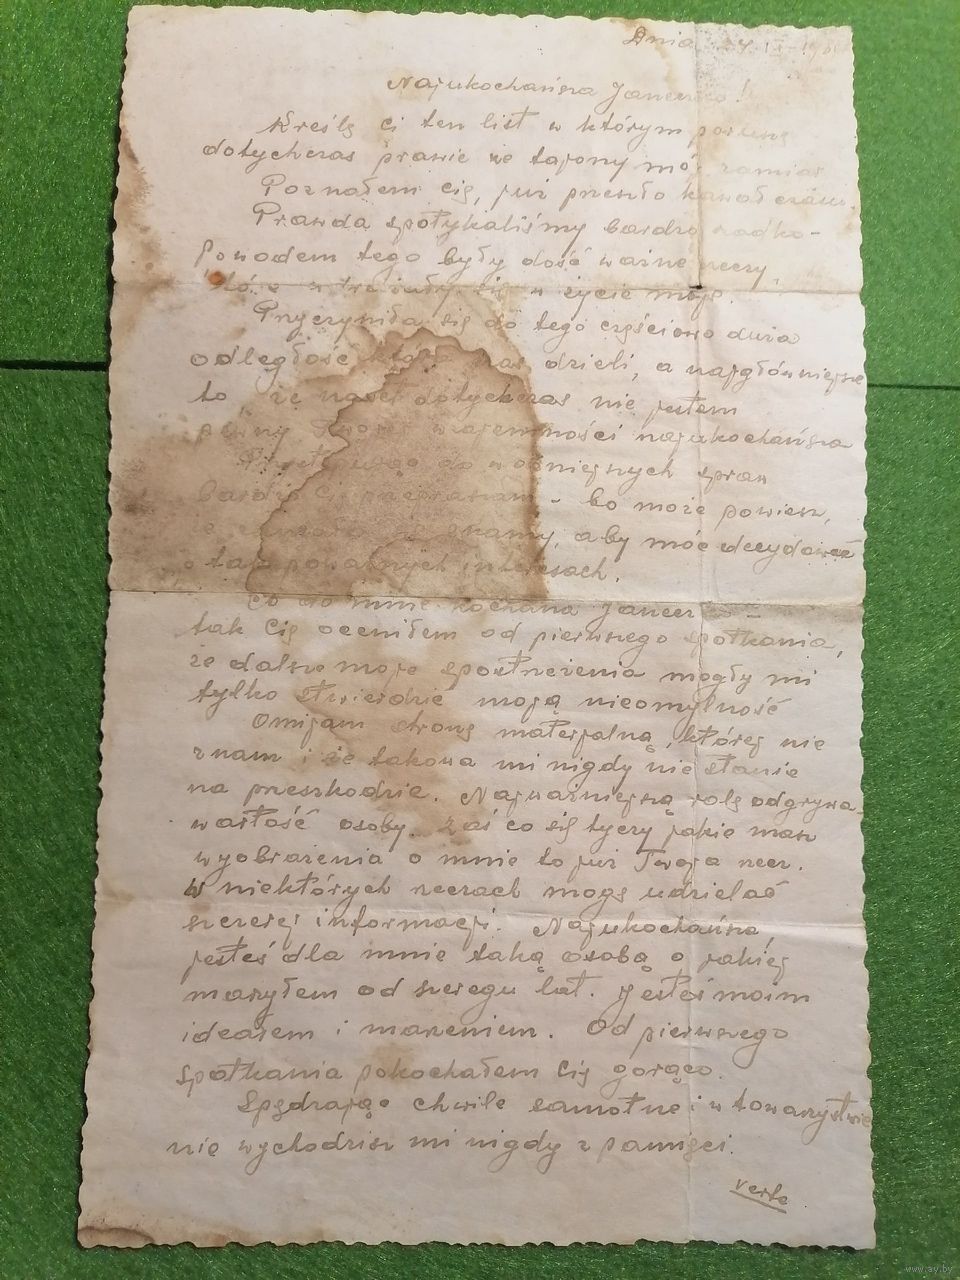 Dnia
Najukochańsza Janeczko!
Kreślę ci ten list w którym
dotychczas prawie że tajony mój zamiar
Poznałem cię, już przeszło kawał czasu.
Prawda spotykaliśmy bardzo rzadko-
Powodem tego były dość ważne rzeczy,
się w życie moje.
Przyczyniła się do tego częściowo duża
odległość która nas dzieli, a najgłówniejsze
to że nawet dotychczas nie jestem
pewny Twojej wzajemności najukochańsza
do w obniejszych spraw
bardzo Ci przepraszam - bo może powiesz,
znamy, aby móc decydować
o tak poważnych interesach.
Co do mnie kochana
tak Cię oceniłem od pierwszego spotkania,
że dalsze moje spostrzeżenia mogły mi
tylko stwierdzić moją nieomylność
Omijam stronę materjalną, której nie
znam i że takowa mi nigdy nie stanie
na przeszkodzie. Najważniejszą rolę odgrywa
wartość osoby. Zaś co się tyczy jakie masz
wyobrażenia o mnie to już Twoja rzecz.
W niektórych rzeczach mogę udzielać
szczerej informacji. Najukochańsza,
jesteś dla mnie taką osobą o jakiej
marzyłem od szeregu lat. Jesteś moim
ideałem i marzeniem. Od pierwszego
spotkania pokochałem Cię gorąco.
Spędzając chwile samotne i w towarzystwie
nie wychodzisz mi nigdy z pamięci.
verte
www.ay.by